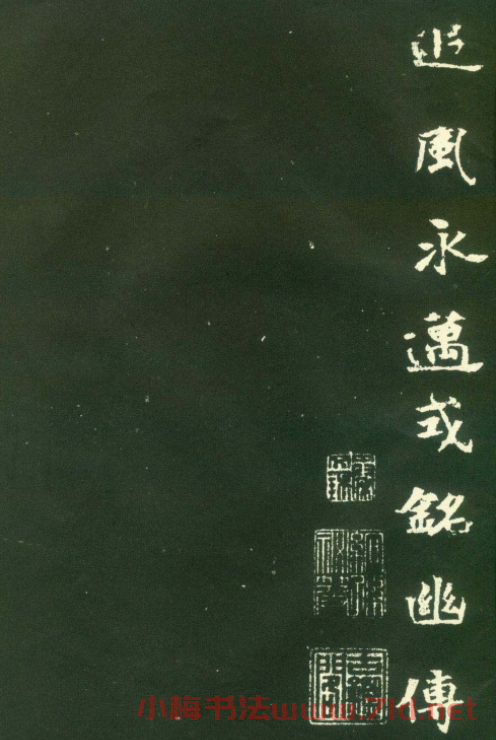 追風永邁式銘幽傳
小梅书法www.7ld.net